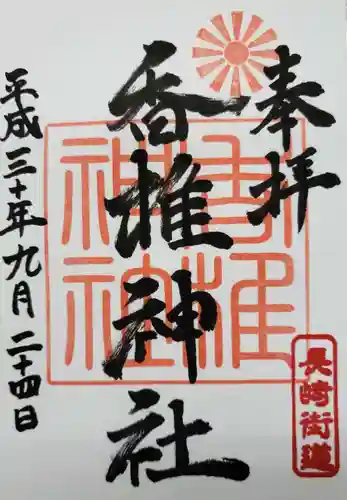 奉拝
香椎神社
平成三十年九月二十四日
香椎神社
長崎街道